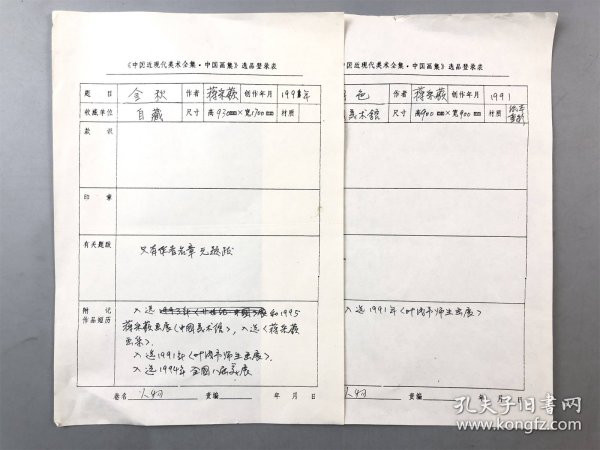 《中国近现代美术全集·中国画集》选品登录表
题 目 金秋 作者 蒋采蘋 创作年月 1991年
收藏单位 自藏 尺寸 高930mm×宽1700mm 材质
款 识
印 章
有关题跋 只有作者名章 无题跋
附 记
作品履历
入选 和1995
蒋采蘋画展(中国美术馆),入选《蒋采蘋
画集》.
入选1991年《叶浅予师生画展》.
入选1994年全国八届美展
卷名 人物 责编 年 月 日
近现代美术全集·中国画集》选品登录表
色 作者 蒋采蘋 创作年月 1991
美术馆 尺寸 高900mm×宽900mm 材质
入选1991年《叶浅予师生画展》
卷名 人物 责编 年 月 日
孔夫子旧书网
www.kongfz.com